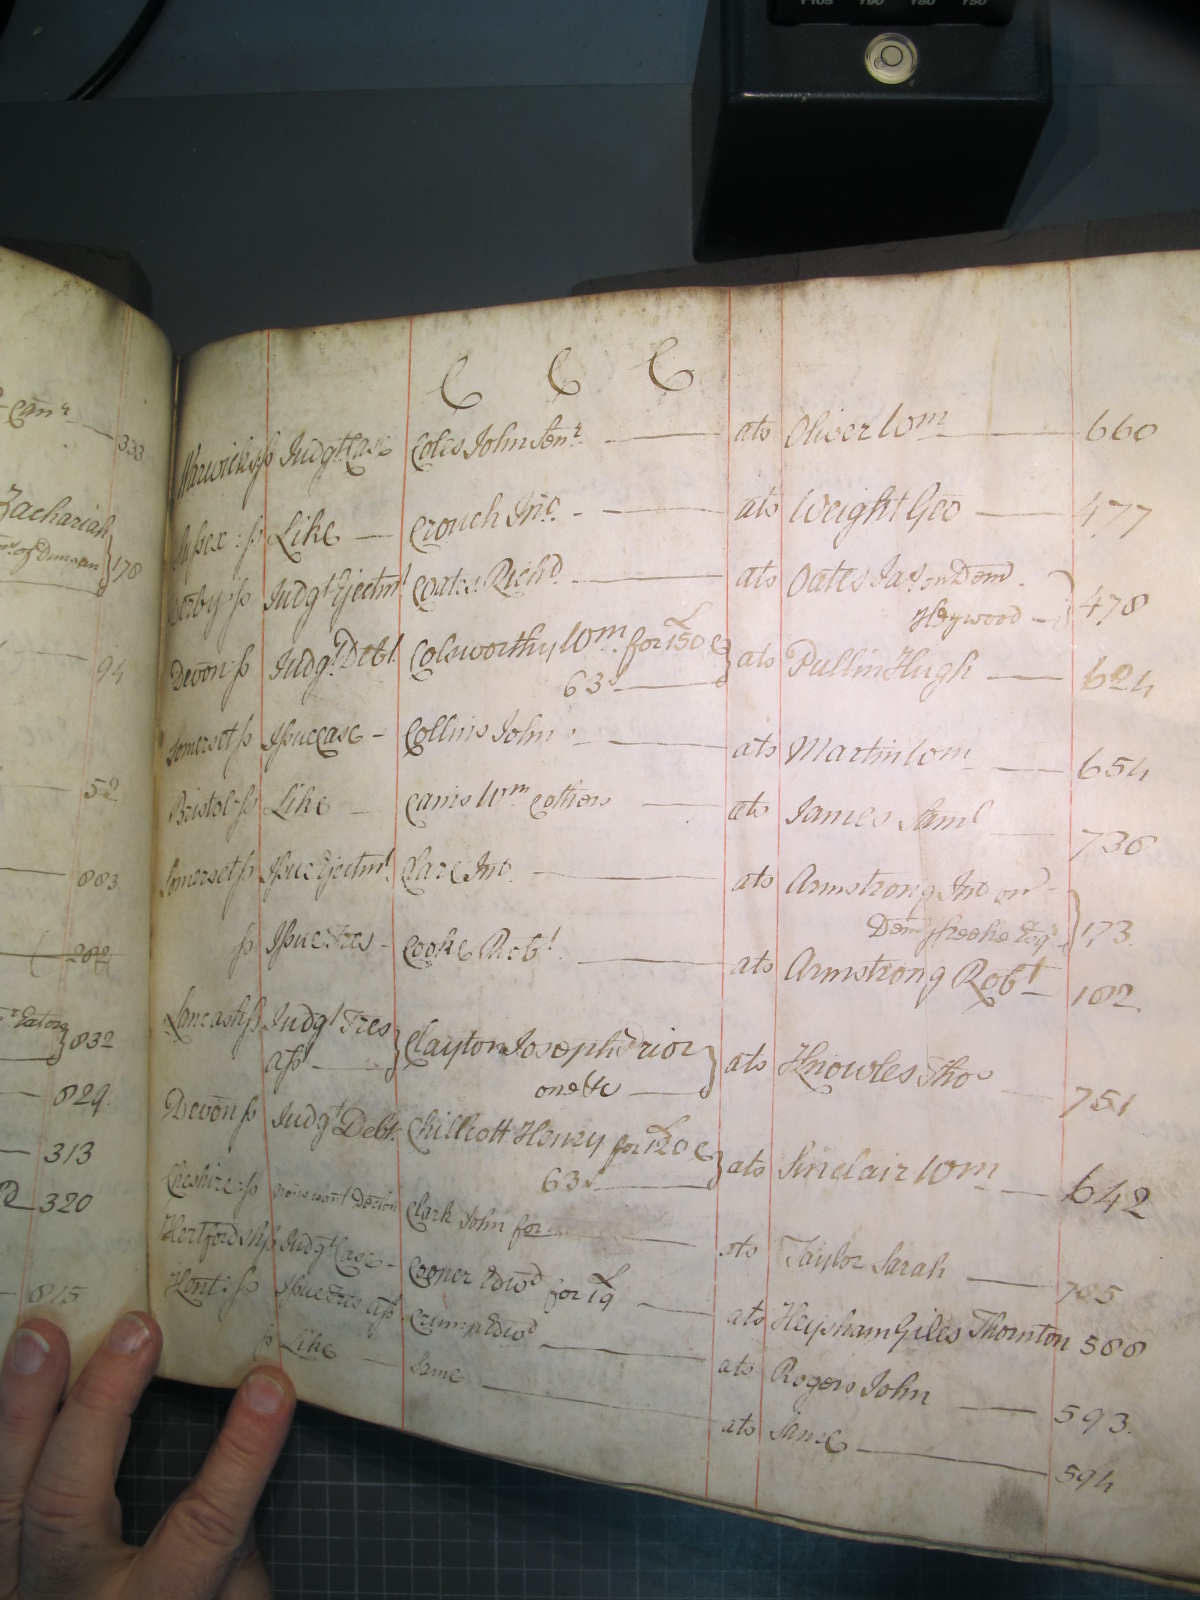 Y105 Y90 Y80 Y50
333
Zachariah
of Duncan } 178
94
52
883
282
Eaton } 832
829.
313
320
815
C C C
Warwicksh ss Judgt Case Coles John Senr ats Oliver Wm 660
Sussex ss Like Crouch Jno. ats Weight Geo 477
Derby ss Judgt Ejectmt Coates Richd ats Oates Jas on Dem.
Heywood } 478
Devon ss Judgt Debt Colsworthy Wm for £150 & } ats Pullin Hugh 624
63s
Somerset ss Issue Case Collins John ats Martin Wm 654
Bristol ss Like Cams Wm & others ats James Saml 736
Somerset ss Issue Ejectmt Clare Jno. ats Armstrong Jno on
Dem Freeke Esqr } 173
ss Issue Tres Cooke Robt ats Armstrong Robt 182
Lancash ss Judgt Tres } Clayton Joseph Prior } ats Knowles Tho 751
ass one &c
Devon ss Judgt Debt Chillcott Henry for £120 & } ats Sinclair Wm 642
63s
Cheshire ss Clark John for ats Taylor Sarah 785
Hertfordsh ss Judgt Case Cooper Edwd for £19 ats Heysham Giles Thornton 588
Kent ss Issue Tres ass Crump Edwd ats Rogers John 593.
ss Like Same ats Same 594